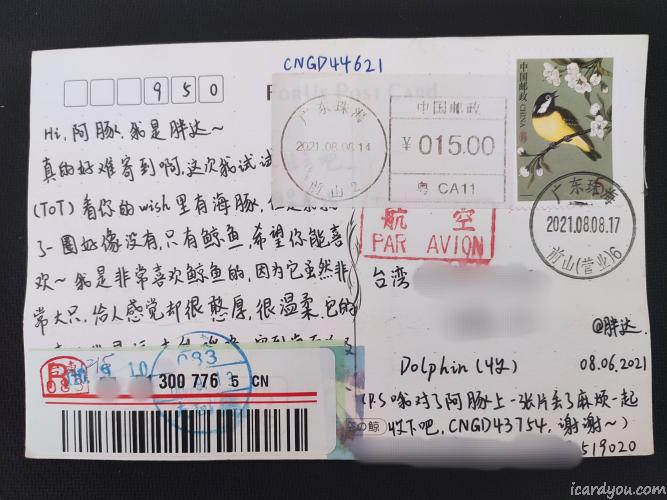 CNGD44621
950
Post Card
Hi, 阿豚, 我是胖达~
真的好难寄到啊,这次我试试
(ToT) 看你的wish里有海豚,
了一圈好像没有,只有鲸鱼,希望你能喜
欢~ 我是非常喜欢鲸鱼的,因为它虽然非
常大只,给人感觉却很憨厚,很温柔,它的
广东珠海
2021.08.08.14
前山 2
中国邮政
¥ 015.00
粤 CA11
中国邮政
CHINA
广东珠海
2021.08.08.17
前山(营业)6
航 空
PAR AVION
台湾
@胖达.
Dolphin (4岁) 08.06.2021
(P.S 哦对了阿豚上一张片丢了麻烦一起
收下吧, CNGD43754, 谢谢~)
519020
の鲸
R
083
10
083
300 776 5 CN
icardyou.com